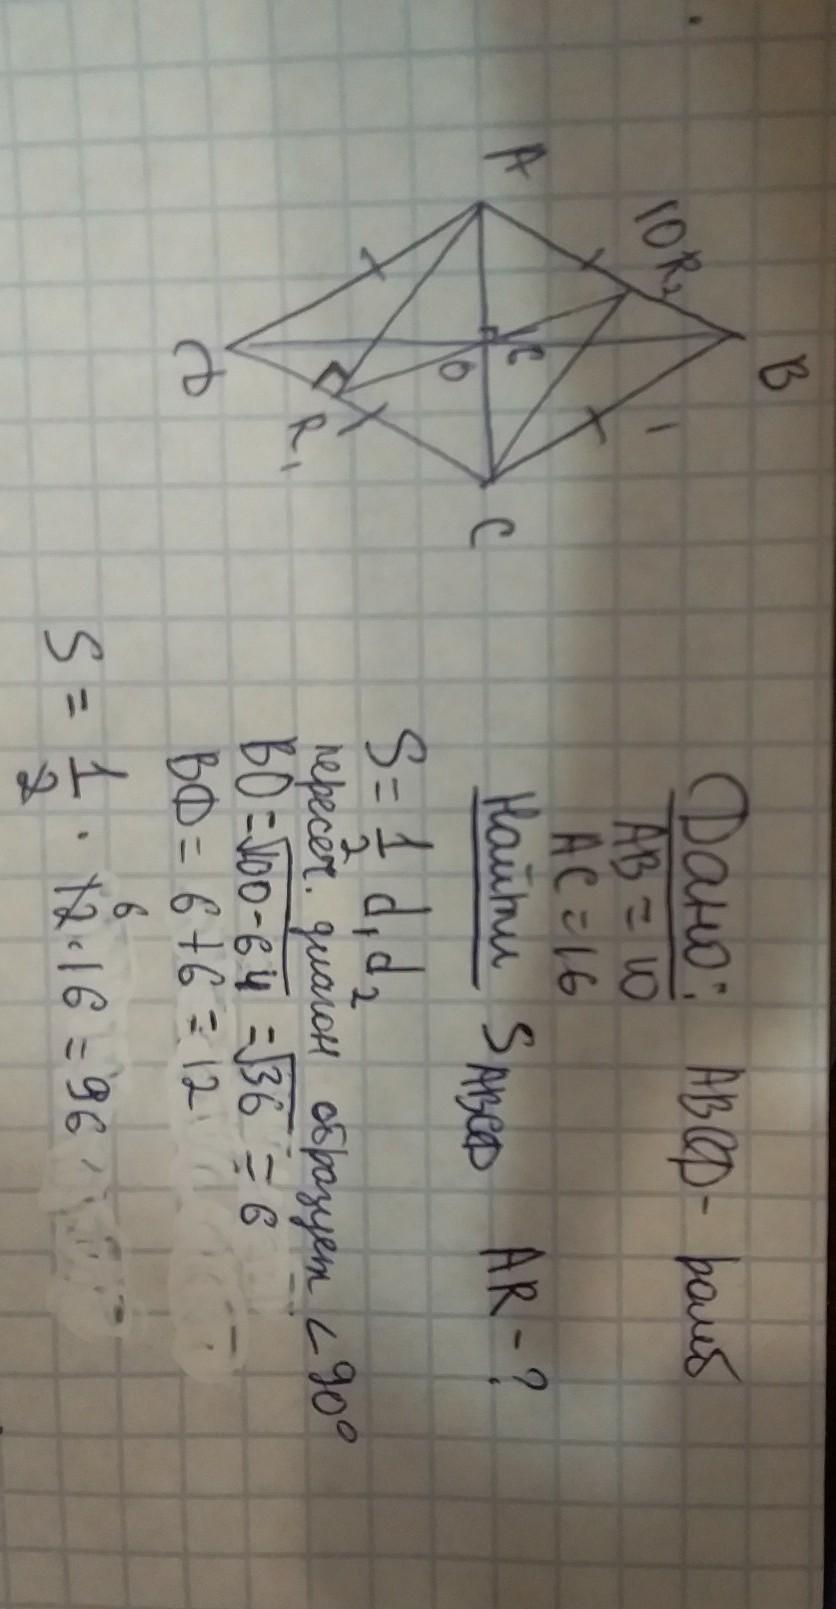 B
10 R₂
A
C
О
C
D
R₁
Дано: ABCD - ромб
AB = 10
AC = 16
Найти SABCD AR - ?
S = 1/2 d₁d₂
пересеч. диагон образует < 90°
BO = √100-64 = √36 = 6
BD = 6+6 = 12
S = 1/2 · 12 · 16 = 96
6